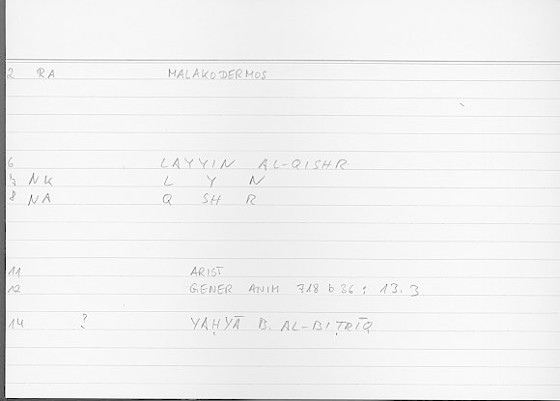 2 RA MALAKODERMOS
6 LAYYIN AL-QISHR
7 NK L Y N
8 NA Q SH R
11 ARIST
12 GENER ANIM 718 b 36 ; 13.3
14 ? YAḤYĀ B. AL-BIṬRĪQ